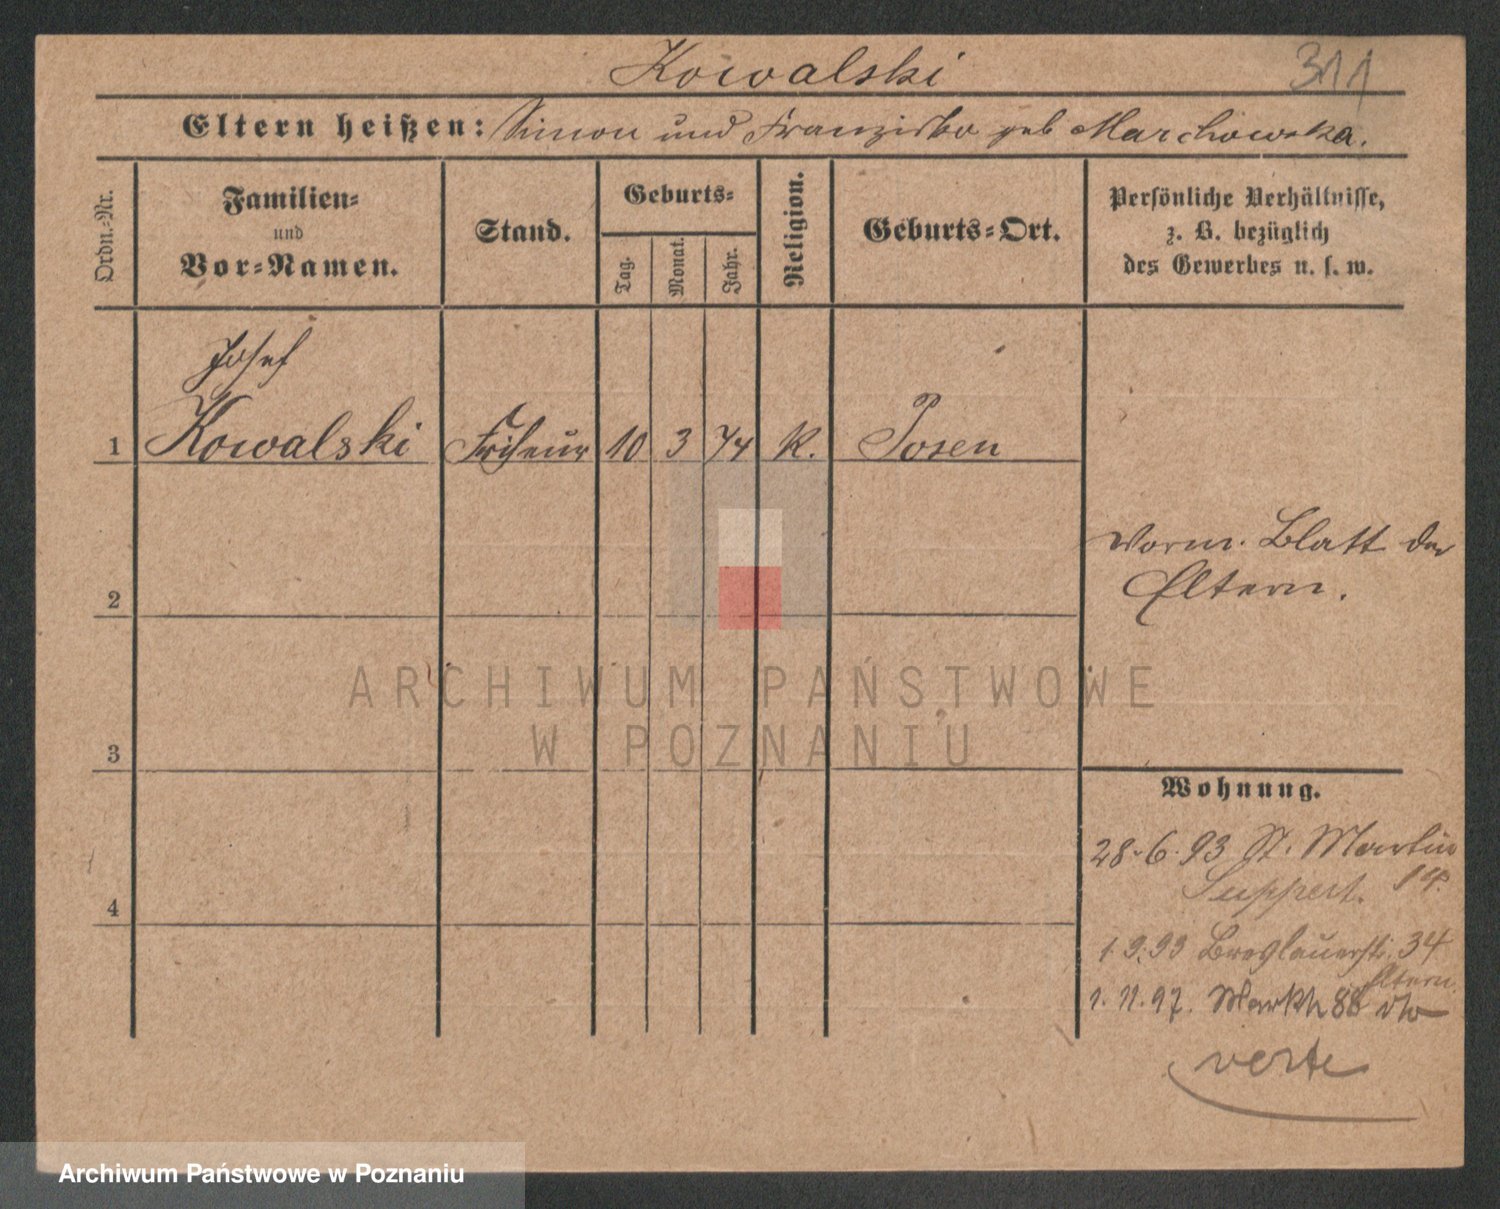 Kowalski
311
Eltern heißen: Simon und Franziska geb Marchowska.
Ordn.=Nr.
Familien=
und
Vor=Namen.
Stand.
Geburts=
Tag.
Monat.
Jahr.
Religion.
Geburts=Ort.
Persönliche Verhältnisse,
z. B. bezüglich
des Gewerbes u. s. w.
Josef
1 Kowalski Friseur 10 3 74 K. Posen
Vorm. Blatt der
Eltern.
2
ARCHIWUM PAŃSTWOWE
W POZNANIU
3
Wohnung.
28.6.93 St. Martin
14.
4
1.9.93 Breslauerstr. 34
Eltern.
1.11.97. Markt 88
verte
Archiwum Państwowe w Poznaniu